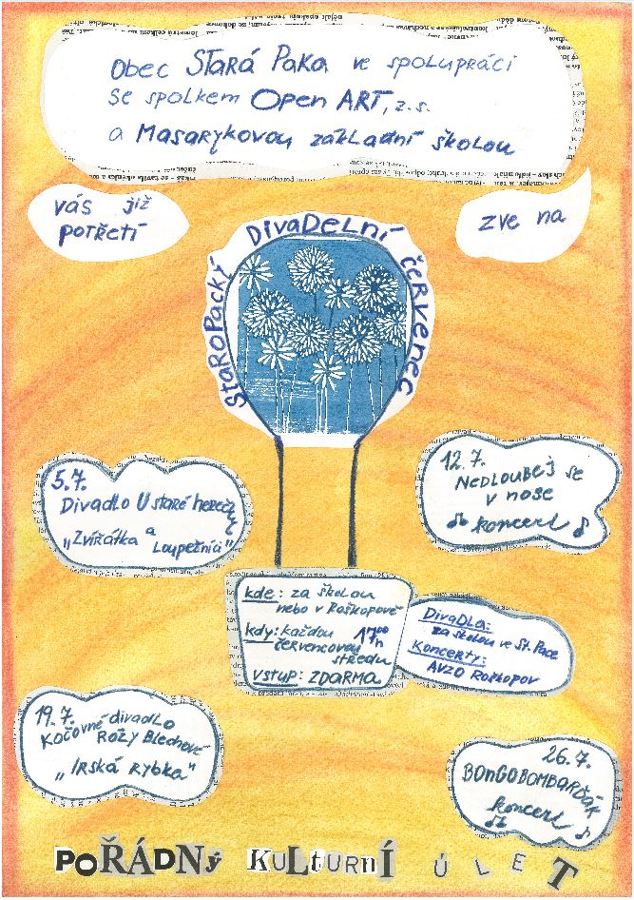 Obec Stará Paka ve spolupráci
se spolkem Open ART, z.s.
a Masarykovou základní školou
vás již
potřetí
zve na
Staropacký Divadelní červenec
5.7.
Divadlo U staré herečky
„Zvířátka a
Loupežníci"
12.7.
Nedloubej se
v nose
koncert
kde: za školou
nebo v Roškopově
kdy: každou 17⁰⁰h
červencovou
středu
vstup: ZDARMA
Divadla:
za školou ve St. Pace
Koncerty:
AVZO Roškopov
19.7.
Kočovné divadlo
Róży Blechové
„Irská rybka"
26.7.
BONGOBOMBARĎÁK
koncert
POŘÁDNÝ KULTURNÍ ÚLET